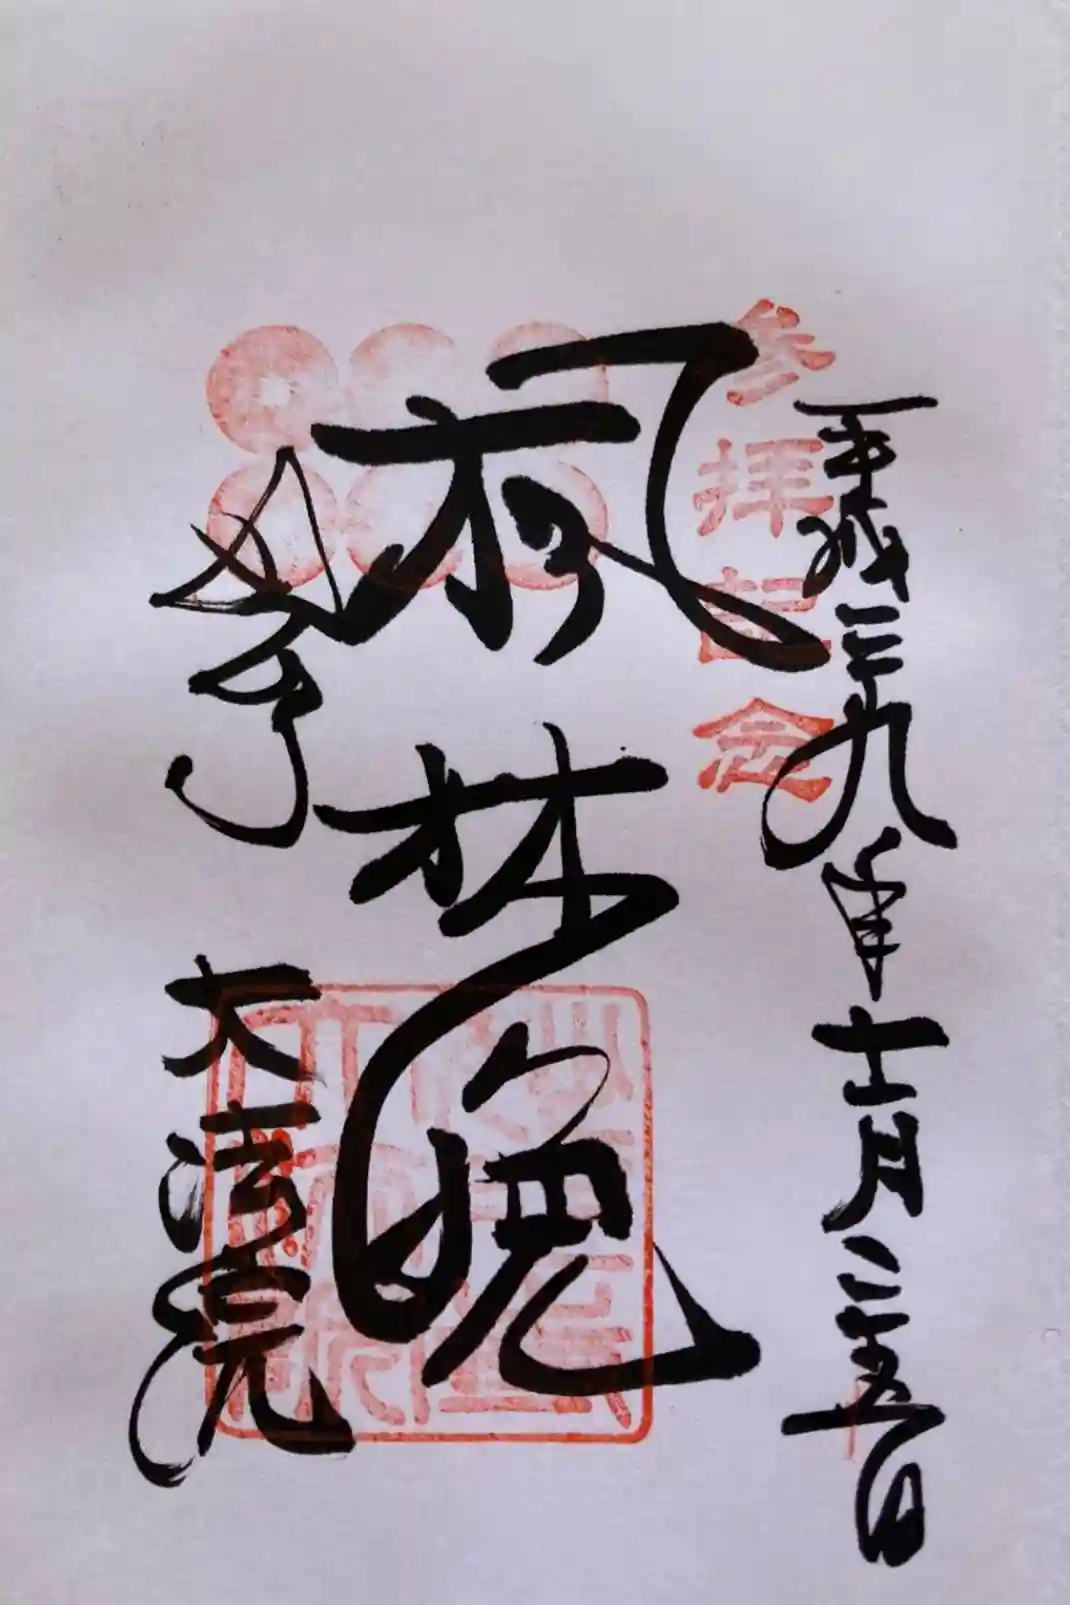 平成二十九年十一月二十五日
参拝記念
楓林晩
大法院